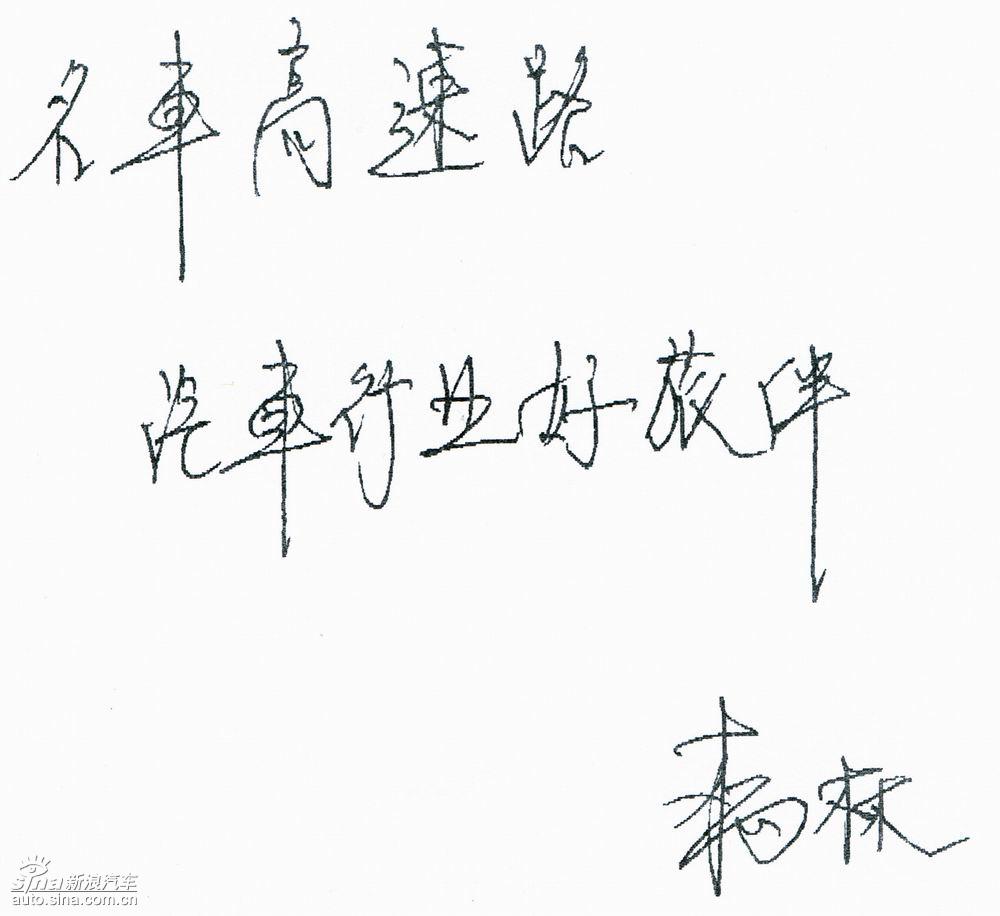 名車高速路
汽車行业好旅伴
林
sina新浪汽车
auto.sina.com.cn